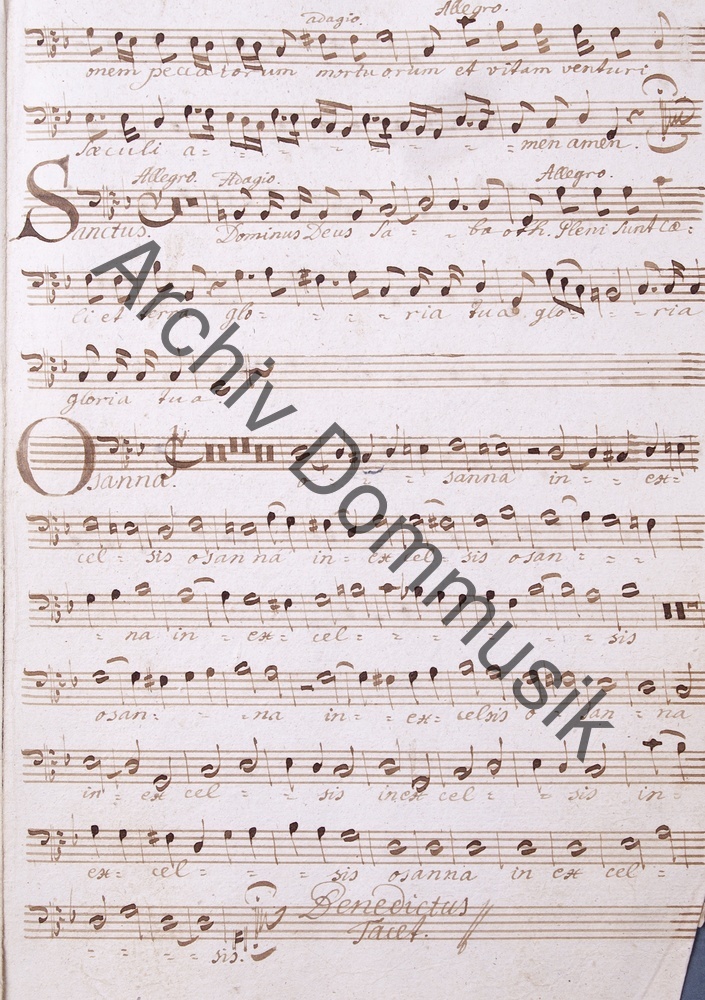 adagio. Allegro.
onem peccatorum mortuorum et vitam venturi
sæculi a- - - - - - - men amen.
Allegro. Adagio. Allegro.
Sanctus. Dominus Deus Sa - - baoth. Pleni sunt cœ-
li et terra glo- - - - ria tua glo- - ria
gloria tua
Osanna. o - - - sanna in - ex-
cel- sis osanna in - excel- sis osan - - -
- na in - ex- cel- - - - - - - sis
osan- - - na in - - ex- celsis o - san - na
in - ex cel - - sis in ex cel - - sis in -
ex- cel- - - - sis osanna in ex cel -
- - - - sis.
Benedictus
Tacet.
Archiv Dommusik